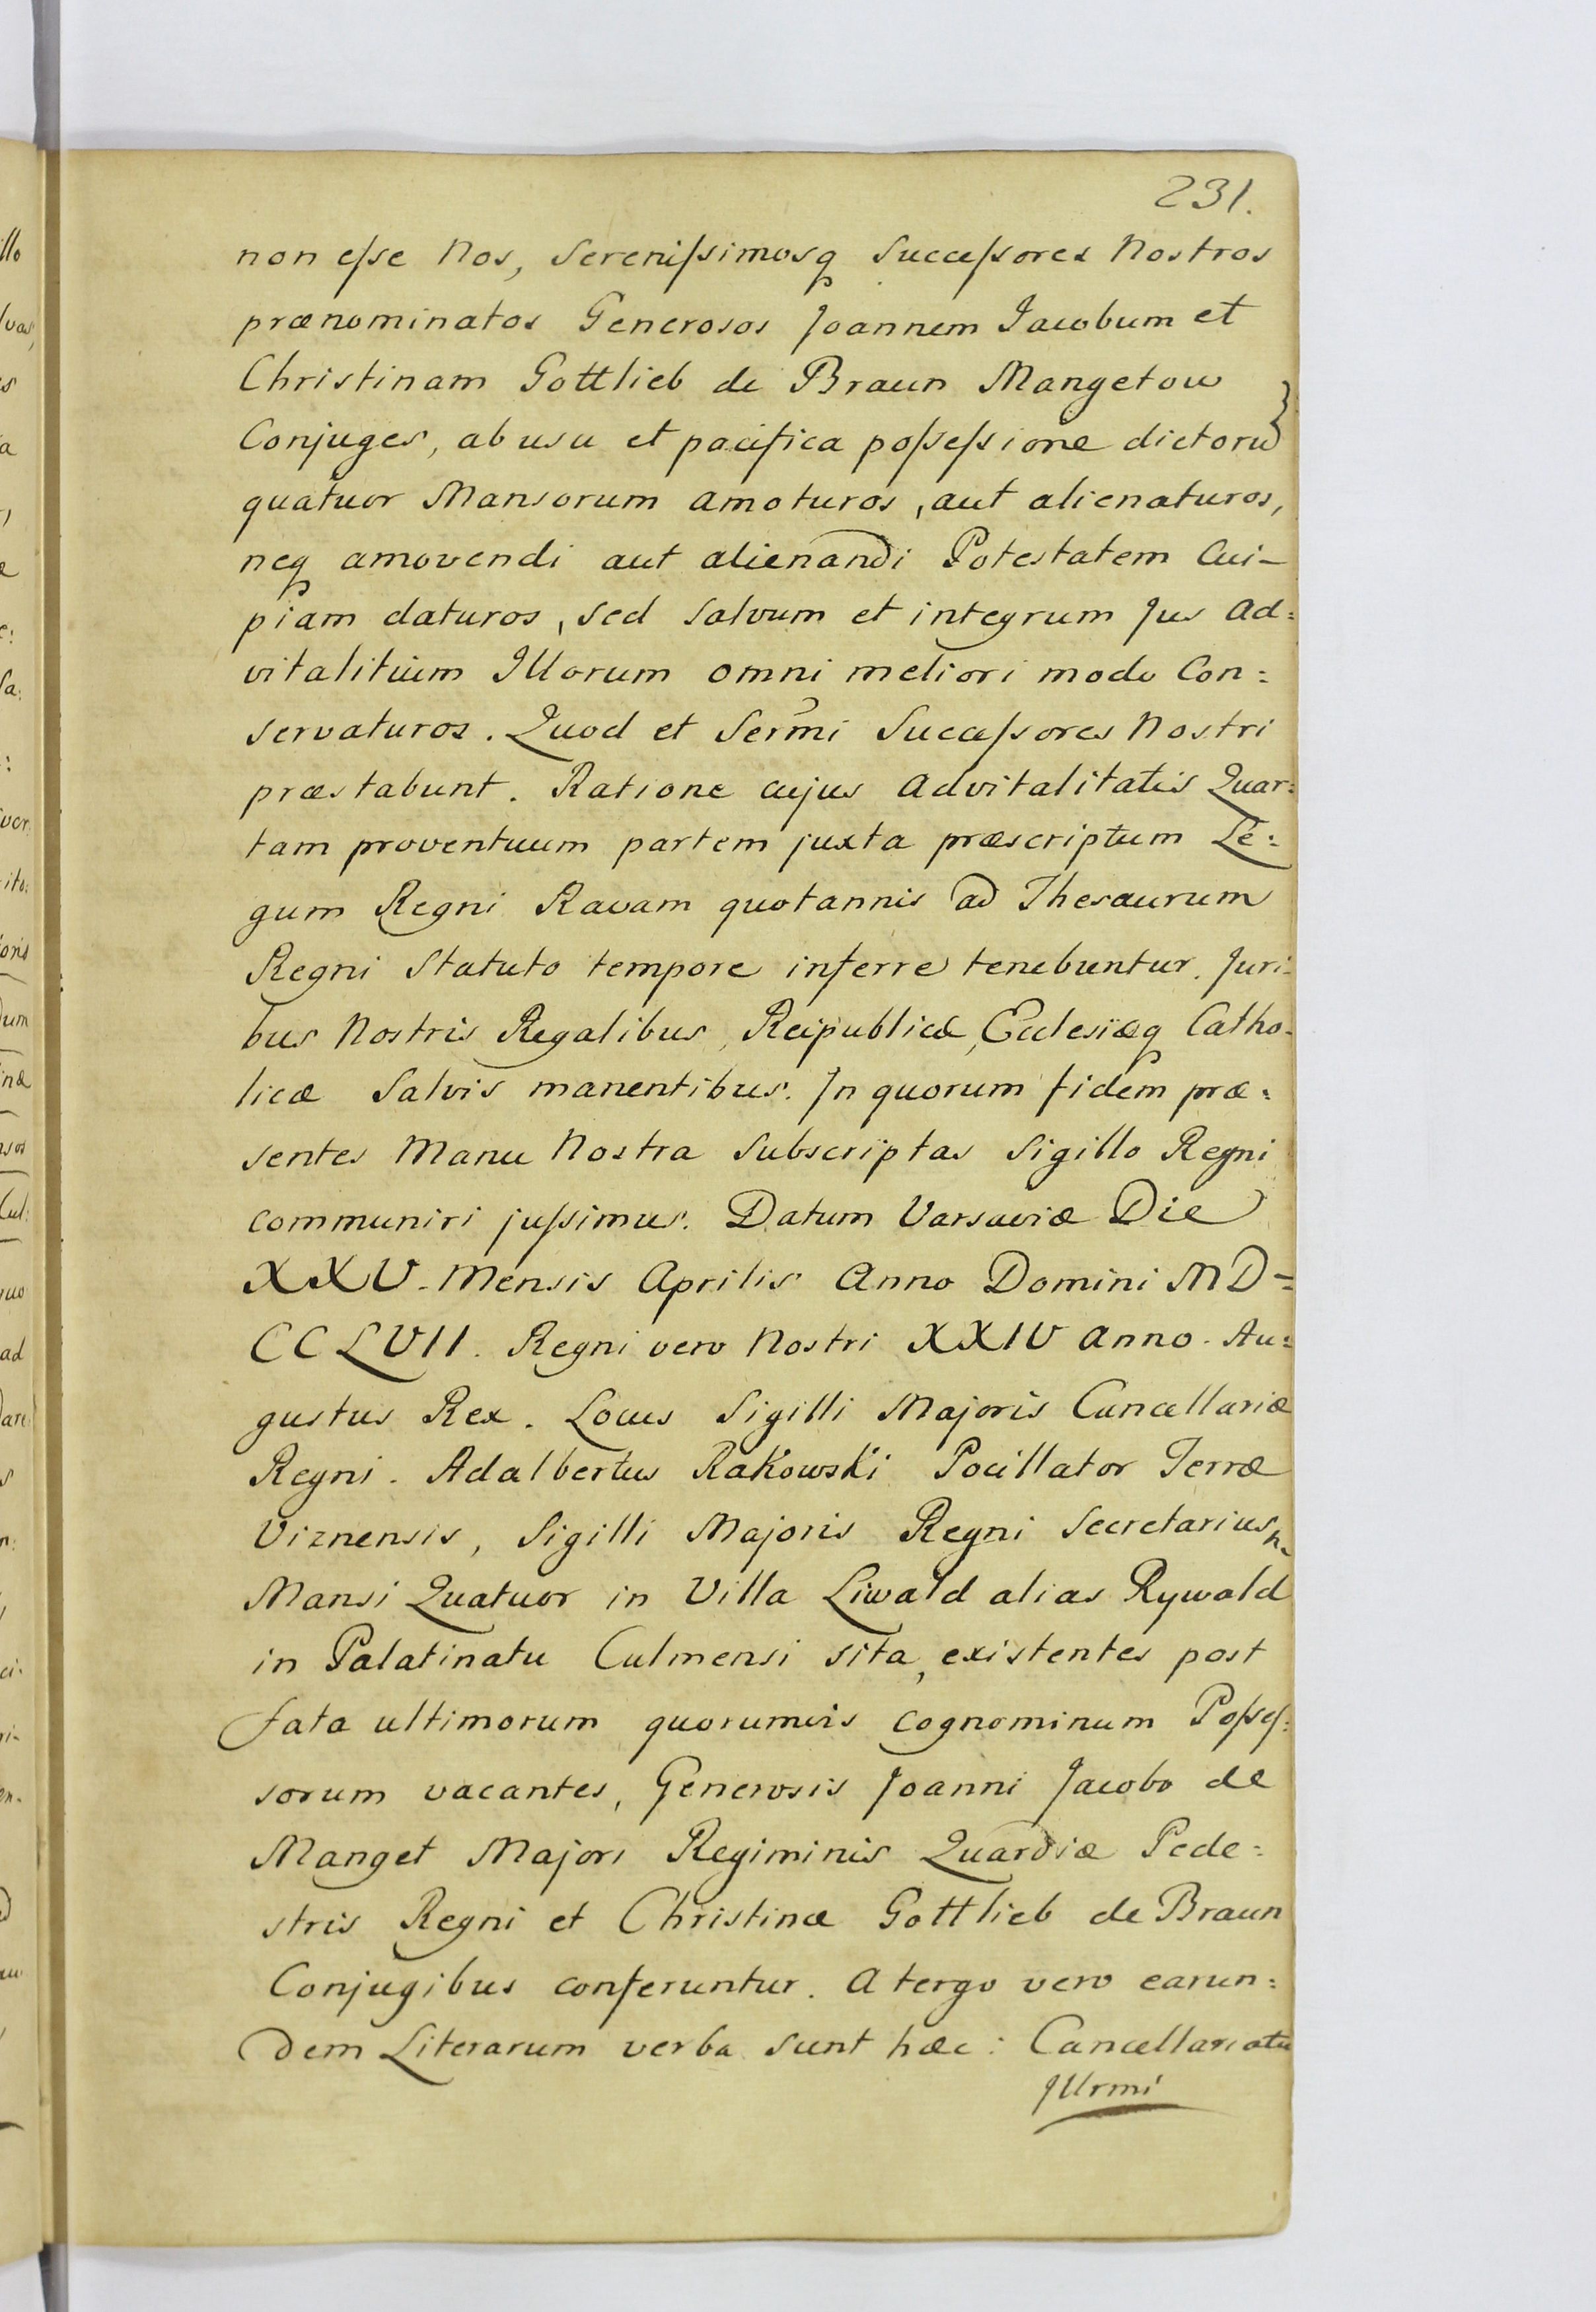 231.
non eſse Nos, Sereniſsimosq Succeſsores Nostros
prænominatos Generosos Joannem Jacobum et
Christinam Gottlieb de Braun Mangetow
Conjuges, ab usu et pacifica poſseſsione dictorū
quatuor Mansorum amoturos, aut alienaturos,
neq amovendi aut alienandi Potestatem Cui-
piam daturos, sed salvum et integrum Jus Ad=
vitalitium Illorum omni meliori modo Con=
servaturos. Quod et Serm̄i Succeſsores Nostri
præstabunt. Ratione cujus Advitalitatis Quar=
tam proventuum partem juxta præscriptum Le=
gum Regni Ravam quotannis ad Thesaurum
Regni Statuto tempore inferre tenebuntur. Juri=
bus Nostris Regalibus, Reipublicæ, Ecclesiæq Catho-
licæ Salvis manentibus. In quorum fidem præ=
sentes Manu Nostra Subscriptas Sigillo Regni
communiri juſsimus. Datum Varsaviæ Die
XXV. Mensis Aprilis Anno Domini MD=
CCLVII. Regni vero Nostri XXIV Anno. Au=
gustus Rex. Locus Sigilli Majoris Cancellariæ
Regni. Adalbertus Rakowski Pocillator Terræ
Viznensis, Sigilli Majoris Regni Secretarius
Mansi Quatuor in Villa Liwald alias Rywald
in Palatinatu Culmensi sita, existentes post
fata ultimorum quorumvis cognominum Poſseſ=
sorum vacantes, Generosis Joanni Jacobo de
Manget Majori Regiminis Quardiæ Pede=
stris Regni et Christinæ Gottlieb de Braun
Conjugibus conferuntur. A tergo vero earun=
dem Literarum verba sunt hæc: Cancellariatu
Illrmi